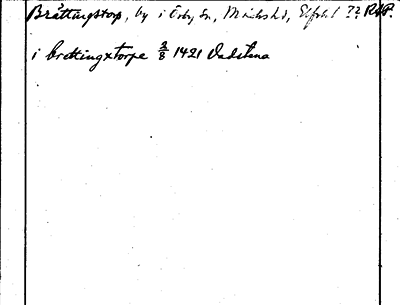 Bråttingstorp, by i Örby sn, Marks hd, Elfsb.l ?? RAP.
i brettingxtorpe 3/8 1421 Vadstena